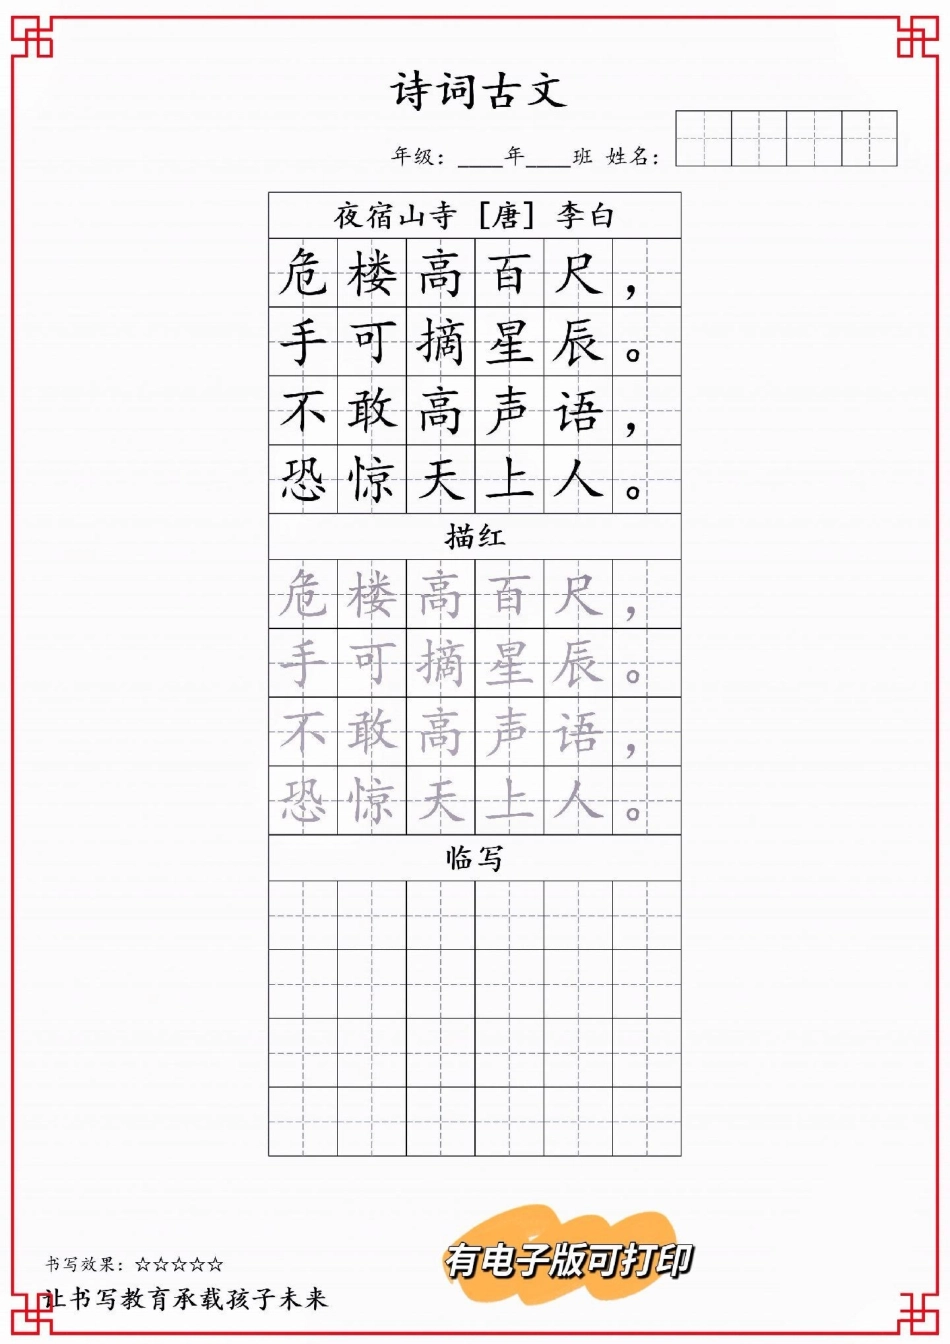 诗词古文
年级：____年____班 姓名：
夜宿山寺 [唐] 李白
危楼高百尺，
手可摘星辰。
不敢高声语，
恐惊天上人。
描红
危楼高百尺，
手可摘星辰。
不敢高声语，
恐惊天上人。
临写
书写效果：☆☆☆☆☆
让书写教育承载孩子未来
有电子版可打印